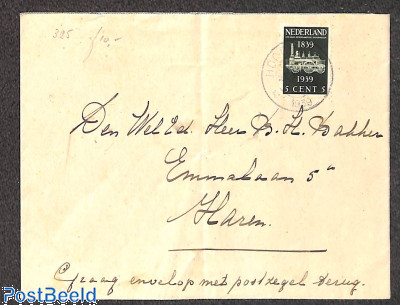 325 f10,-
NEDERLAND
1839
1939
5 CENT 5
Den Wel Ed. Heer D. H. Bakker
Emmalaan 5a
Haren.
Graag envelop met postzegel terug.
PostBeeld
.com